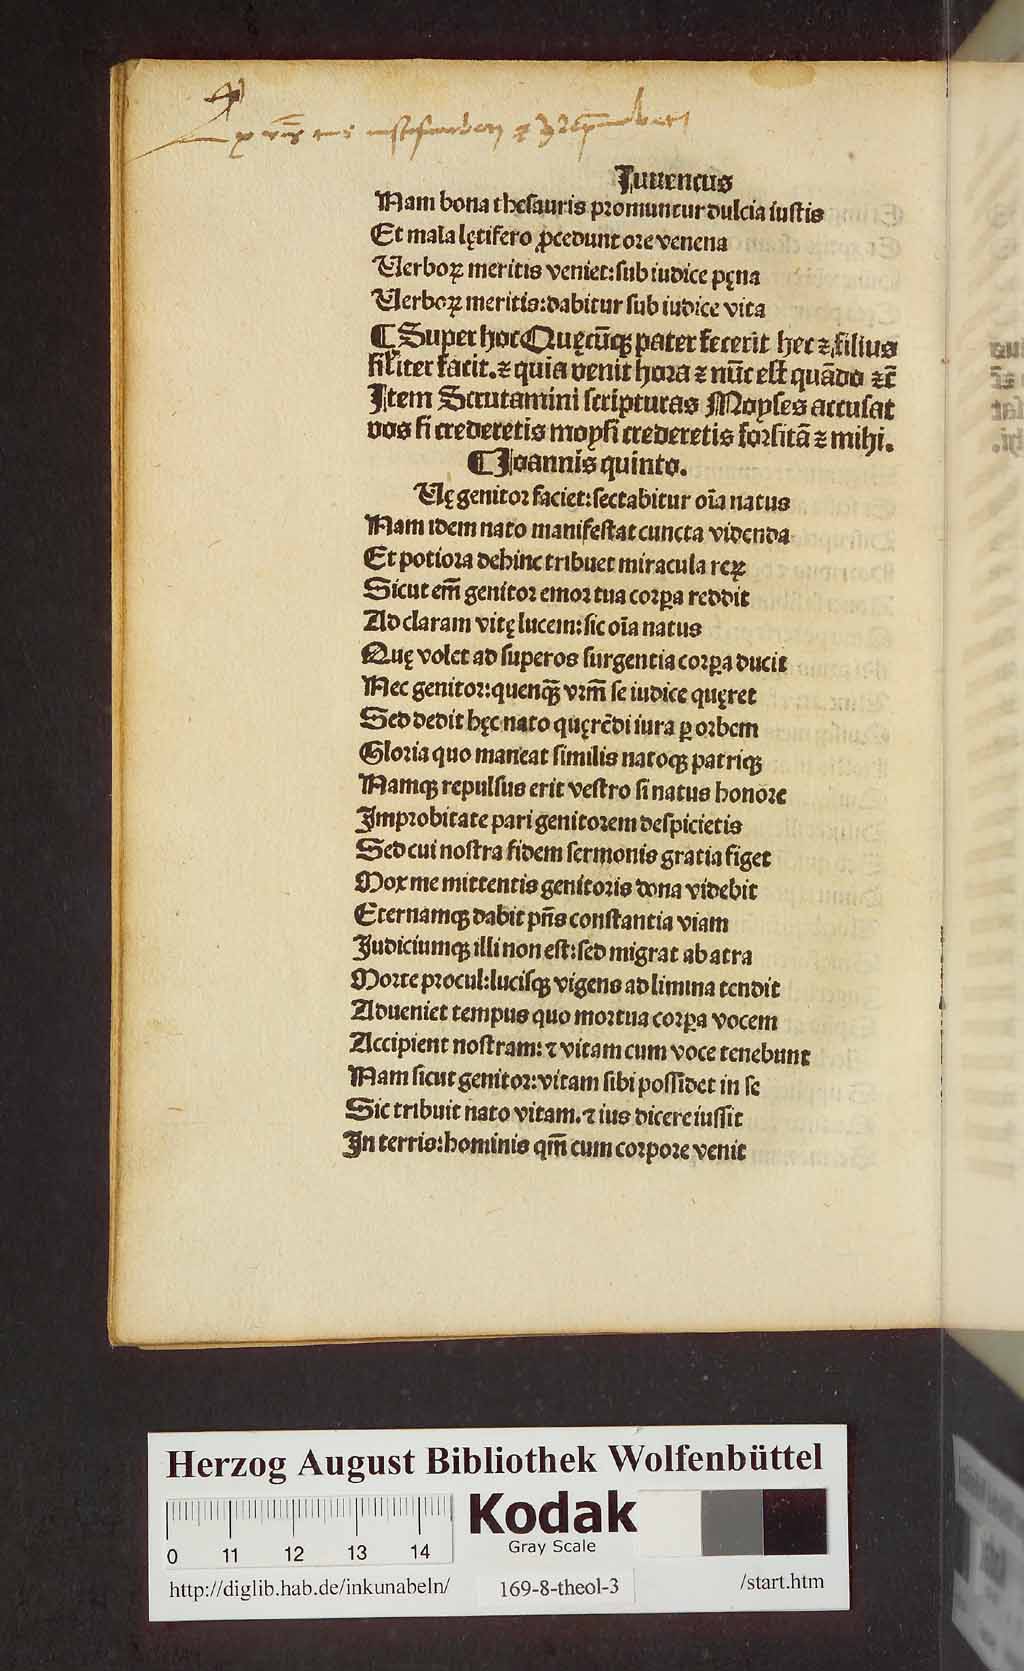 Iuuencus
Nam bona thesauris promuntur dulcia iustis
Et mala lętifero ꝓcedunt ore venena
Verboꝝ meritis veniet: sub iudice pęna
Verboꝝ meritis: dabitur sub iudice vita
¶ Super hoc Quęcūqꝫ pater fecerit hec ⁊ filius
silr̄iter facit. ⁊ quia venit hora ⁊ nūc est quādo ⁊c̄
Item Scrutamini scripturas Moyses accusat
vos si crederetis moysi crederetis forsitā ⁊ mihi.
¶ Ioannis quinto.
Vę genitor faciet: sectabitur oīa natus
Nam idem nato manifestat cuncta videnda
Et potiora dehinc tribuet miracula reꝝ
Sicut em̄ genitor emor tua corꝑa reddit
Ad claram vitę lucem: sic oīa natus
Quę volet ad superos surgentia corꝑa ducit
Nec genitor: quenqꝫ̄ vr̄m̄ se iudice quęret
Sed dedit hęc nato quęrēdi iura ꝑ orbem
Gloria quo maneat similis natoqꝫ patriqꝫ
Namqꝫ repulsus erit vestro si natus honore
Improbitate pari genitorem despicietis
Sed cui nostra fidem sermonis gratia figet
Mox me mittentis genitoris dona videbit
Eternamqꝫ dabit pn̄s constantia viam
Iudiciumqꝫ illi non est: sed migrat ab atra
Morte procul: lucisqꝫ vigens ad limina tendit
Adueniet tempus quo mortua corꝑa vocem
Accipient nostram: ⁊ vitam cum voce tenebunt
Nam sicut genitor: vitam sibi possidet in se
Sic tribuit nato vitam. ⁊ ius dicere iussit
In terris: hominis qm̄ cum corpore venit
Herzog August Bibliothek Wolfenbüttel
Kodak
Gray Scale
0 11 12 13 14
http://diglib.hab.de/inkunabeln/ 169-8-theol-3 /start.htm